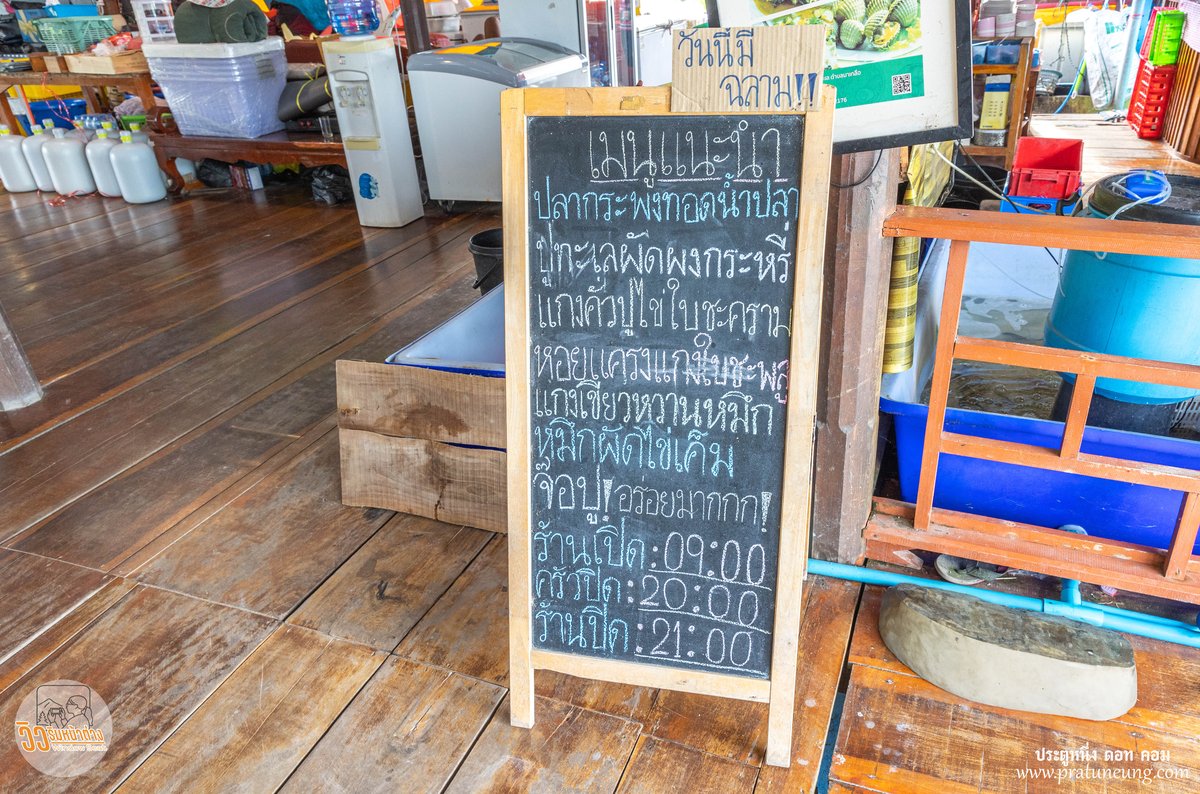 วันนี้มี
ฉลาม!!
เมนูแนะนำ
ปลากระพงทอดน้ำปลา
ปูทะเลผัดผงกระหรี่
แกงคั่วปูไข่ใบชะคราม
หอยแครงแกงใบชะพลู
แกงเขียวหวานหมึก
หมึกผัดไข่เค็ม
จ๊อปู! อร่อยมากกก!
ร้านเปิด : 09:00
ครัวปิด : 20:00
ร้านปิด : 21:00
วิวริมหน้าต่าง
ประตูหนึ่ง ดอท คอม
www.pratuneung.com